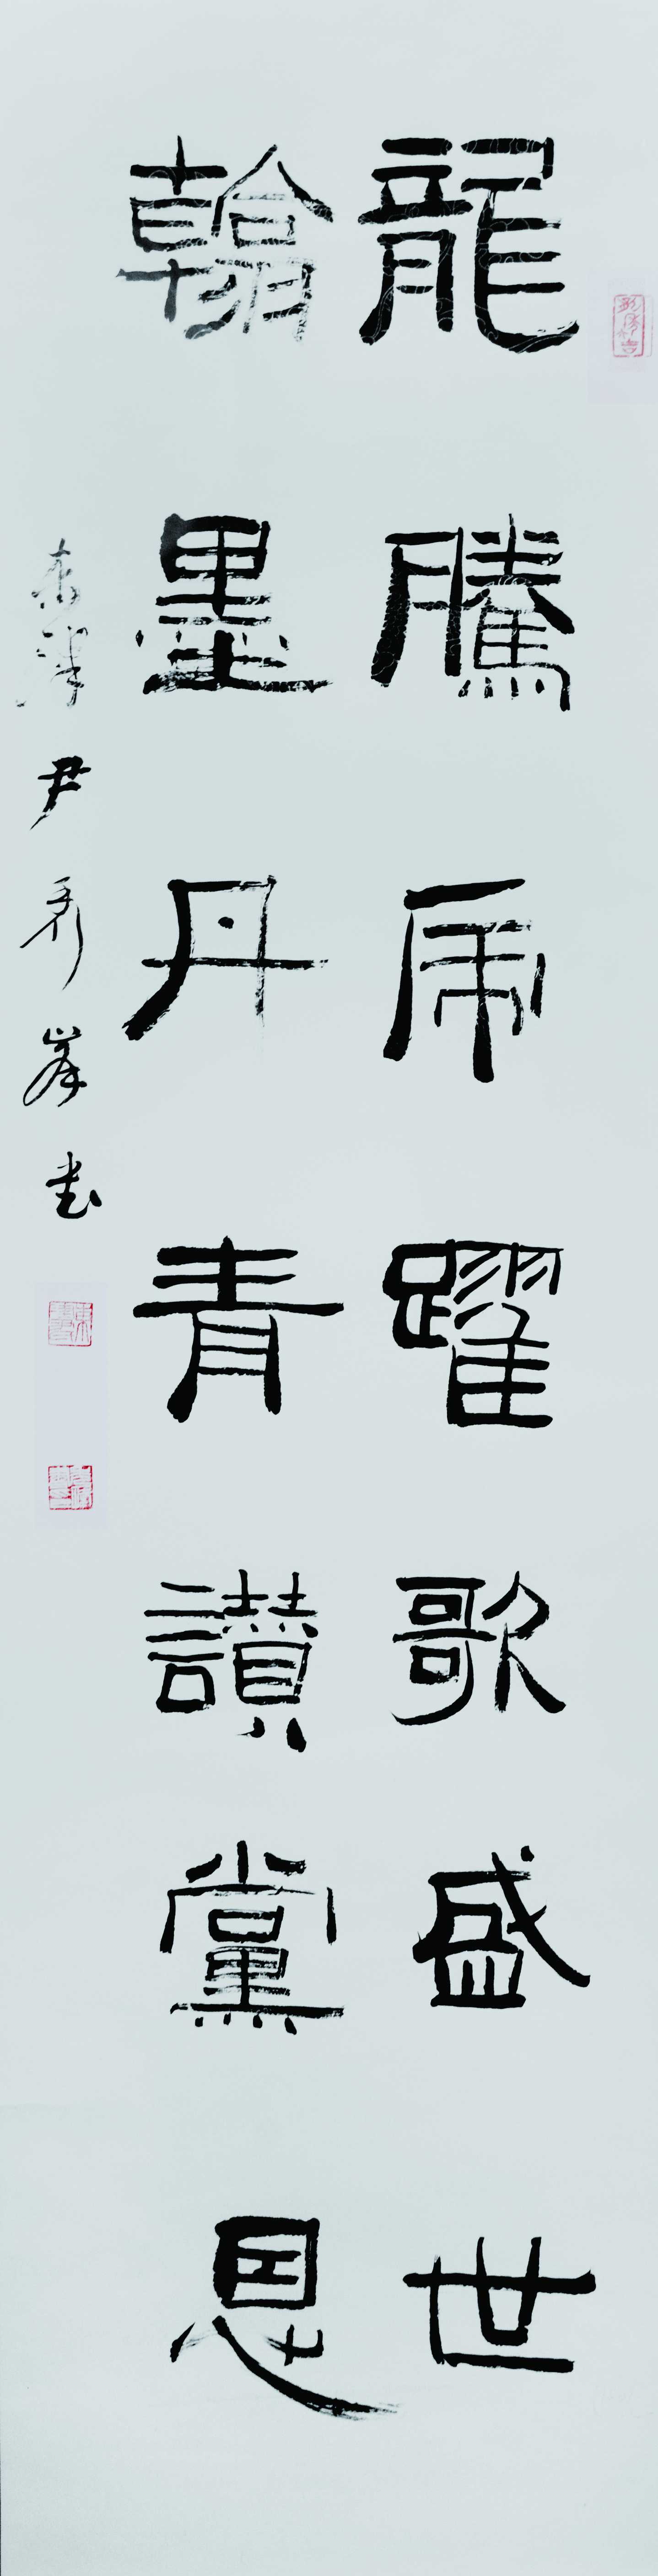 龍騰虎躍歌盛世
翰墨丹青讃黨恩
尹秀峯书